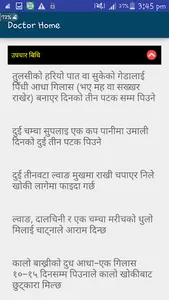 3:45 pm
73%
Doctor Home
उपचार बिधि
तुलसीको हरियो पात वा सुकेको गेडालाई
पिँधी आधा गिलास (भए मह वा सख्खर
राखेर) बनाएर दिनको तीन पटक सम्म पिउने
दुई चम्चा सुपलाइ एक कप पानीमा उमाली
दिनको दुई तीन पटक पिउने
दुई तीनवटा ल्वाङ मुखमा राखी चपाएर निले
खोकी लागेमा फाइदा गर्छ
ल्वाङ, दालचिनी र एक चम्चा मरीचको धुलो
मिलाई चाट्नाले आराम दिन्छ
कालो बाख्रीको दुध आधा-एक गिलास
१०-१५ दिनसम्म पिउनाले कालो खोकीबाट
छुट्कारा मिल्छ